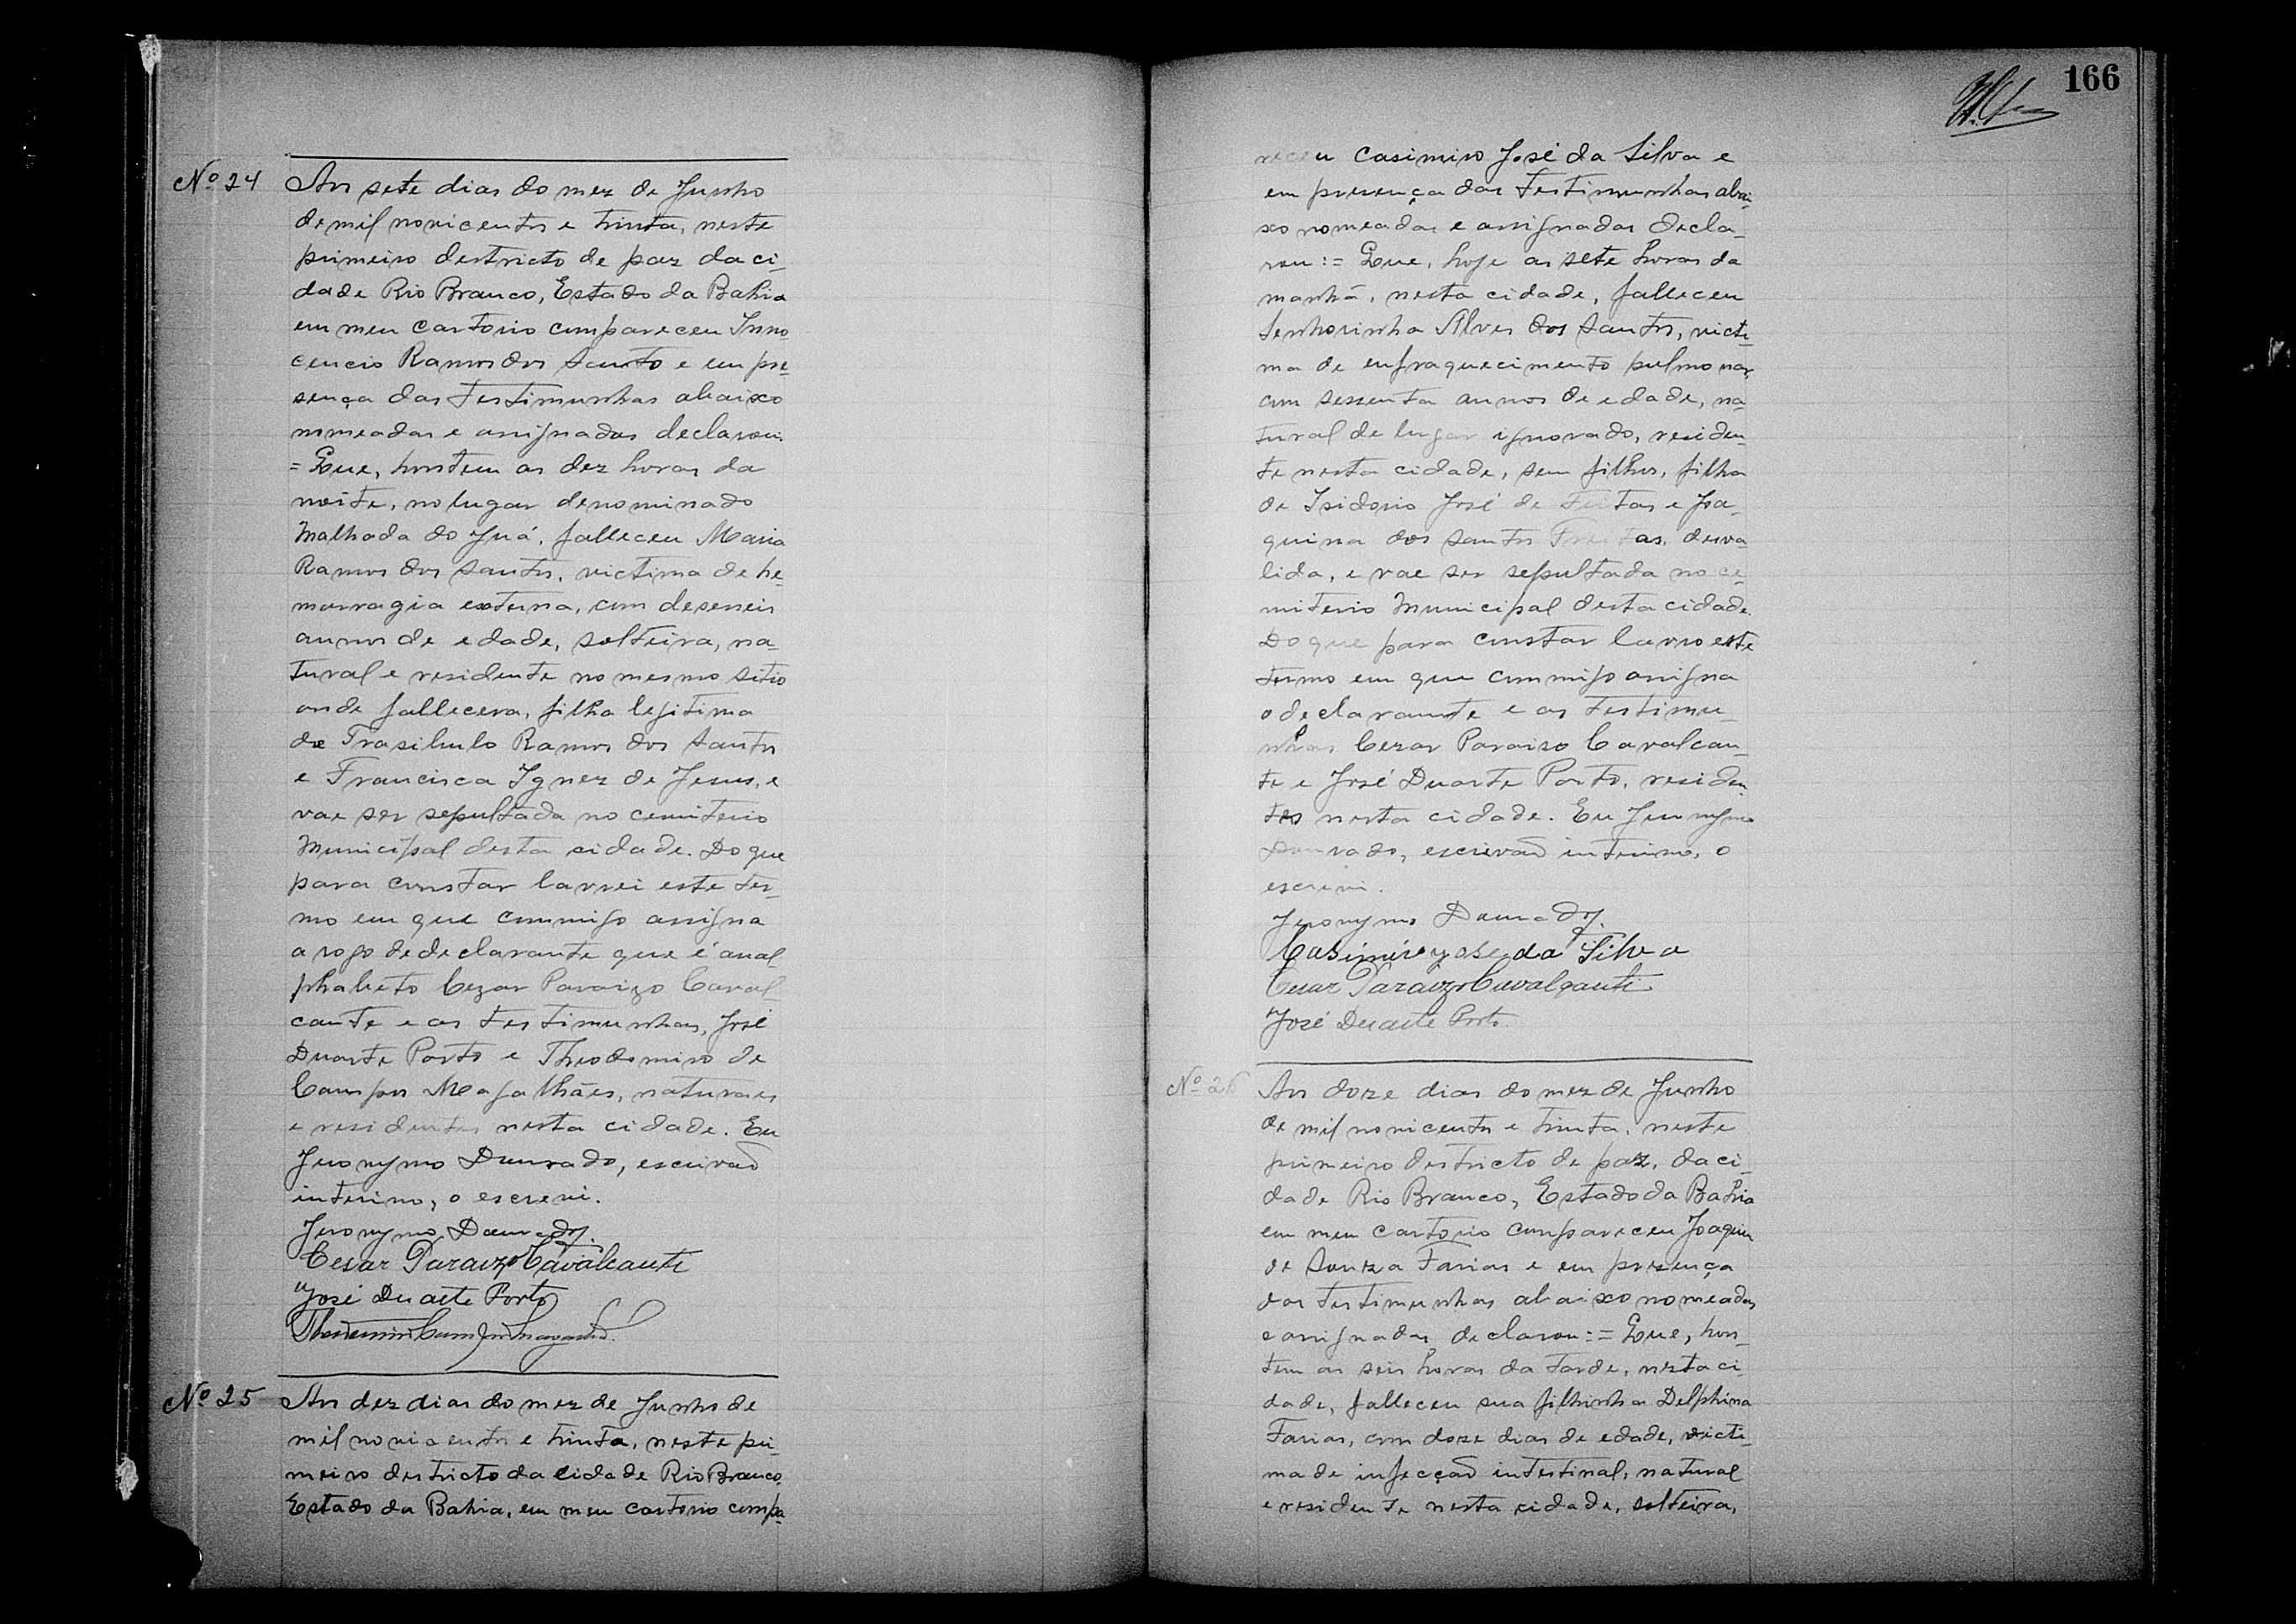 Nº 24 Aos sete dias do mez de Junho
de mil novicentos e trinta, neste
primeiro destricto de paz da ci-
dade Rio Branco, Estado da Bahia
em meu cartorio compareceu Inno-
cencio Ramos dos Santo e em pre-
sença das testimunhas abaixo
nomeadas e assignadas declarou:
= Que, hontem as dez horas da
noite, no lugar denominado
Malhada do Juá, falleceu Maria
Ramos dos Santos, victima de he-
morragia externa, com deseseis
annos de edade, solteira, na-
tural e residente no mesmo sitio
onde fallecera, filha legitima
de Trasibulo Ramos dos Santos
e Francisca Ignez de Jesus, e
vae ser sepultada no cemiterio
Municipal desta cidade. Do que
para constar lavrei este ter-
mo em que commigo assigna
a rogo de declarante que é anal-
phabeto Cezar Paraizo Caval-
cante e as testimunhas, José
Duarte Porto e Theodomiro de
Campos Magalhães, naturaes
e residentes nesta cidade. Eu
Jeronymo Dourado, escrivão
interino, o escrevi.
Jeronymo Dourado.
Cesar Paraizo Cavalcanti
José Duarte Porto
Nº 25 Aos dez dias do mez de Junho de
mil novicentos e trinta, neste pri-
meiro destricto da cidade Rio Branco,
Estado da Bahia, em meu cartorio compa-
166
receu Casimiro José da Silva e
em presença das testimunhas abai-
xo nomeadas e assignadas decla-
rou:= Que, hoje as sete horas da
manhã, nesta cidade, falleceu
Senhorinha Alves dos Santos, victi-
ma de enfraquecimento pulmonar,
com sessenta annos de edade, na-
tural de lugar ignorado, residen-
te nesta cidade, sem filhos, filha
de Isidorio José de Freitas e Joa-
quina dos Santos Freitas, desva-
lida, e vae ser sepultada no ce-
miterio Municipal desta cidade.
Do que para constar lavro este
termo em que commigo assigna
o declarante e as testimu-
nhas Cezar Paraizo Cavalcan-
te e José Duarte Porto, residen-
tes nesta cidade. Eu Jeronymo
Dourado, escrivão interino, o
escrevi.
Jeronymo Dourado.
Casimiro Jose da Silva
Cesar Paraizo Cavalcanti
José Duarte Porto.
Nº 26 Aos doze dias do mez de Junho
de mil novicentos e trinta, neste
primeiro destricto de paz, da ci-
dade Rio Branco, Estado da Bahia
em meu cartorio compareceu Joaquim
de Souza Farias e em presença
das testimunhas abaixo nomeadas
e assignadas, declarou:= Que, hon-
tem as seis horas da tarde, nesta ci-
dade, falleceu sua filhinha Delphina
Farias, com doze dias de edade, victi-
ma de infecção intestinal, natural
e residente nesta cidade, solteira,